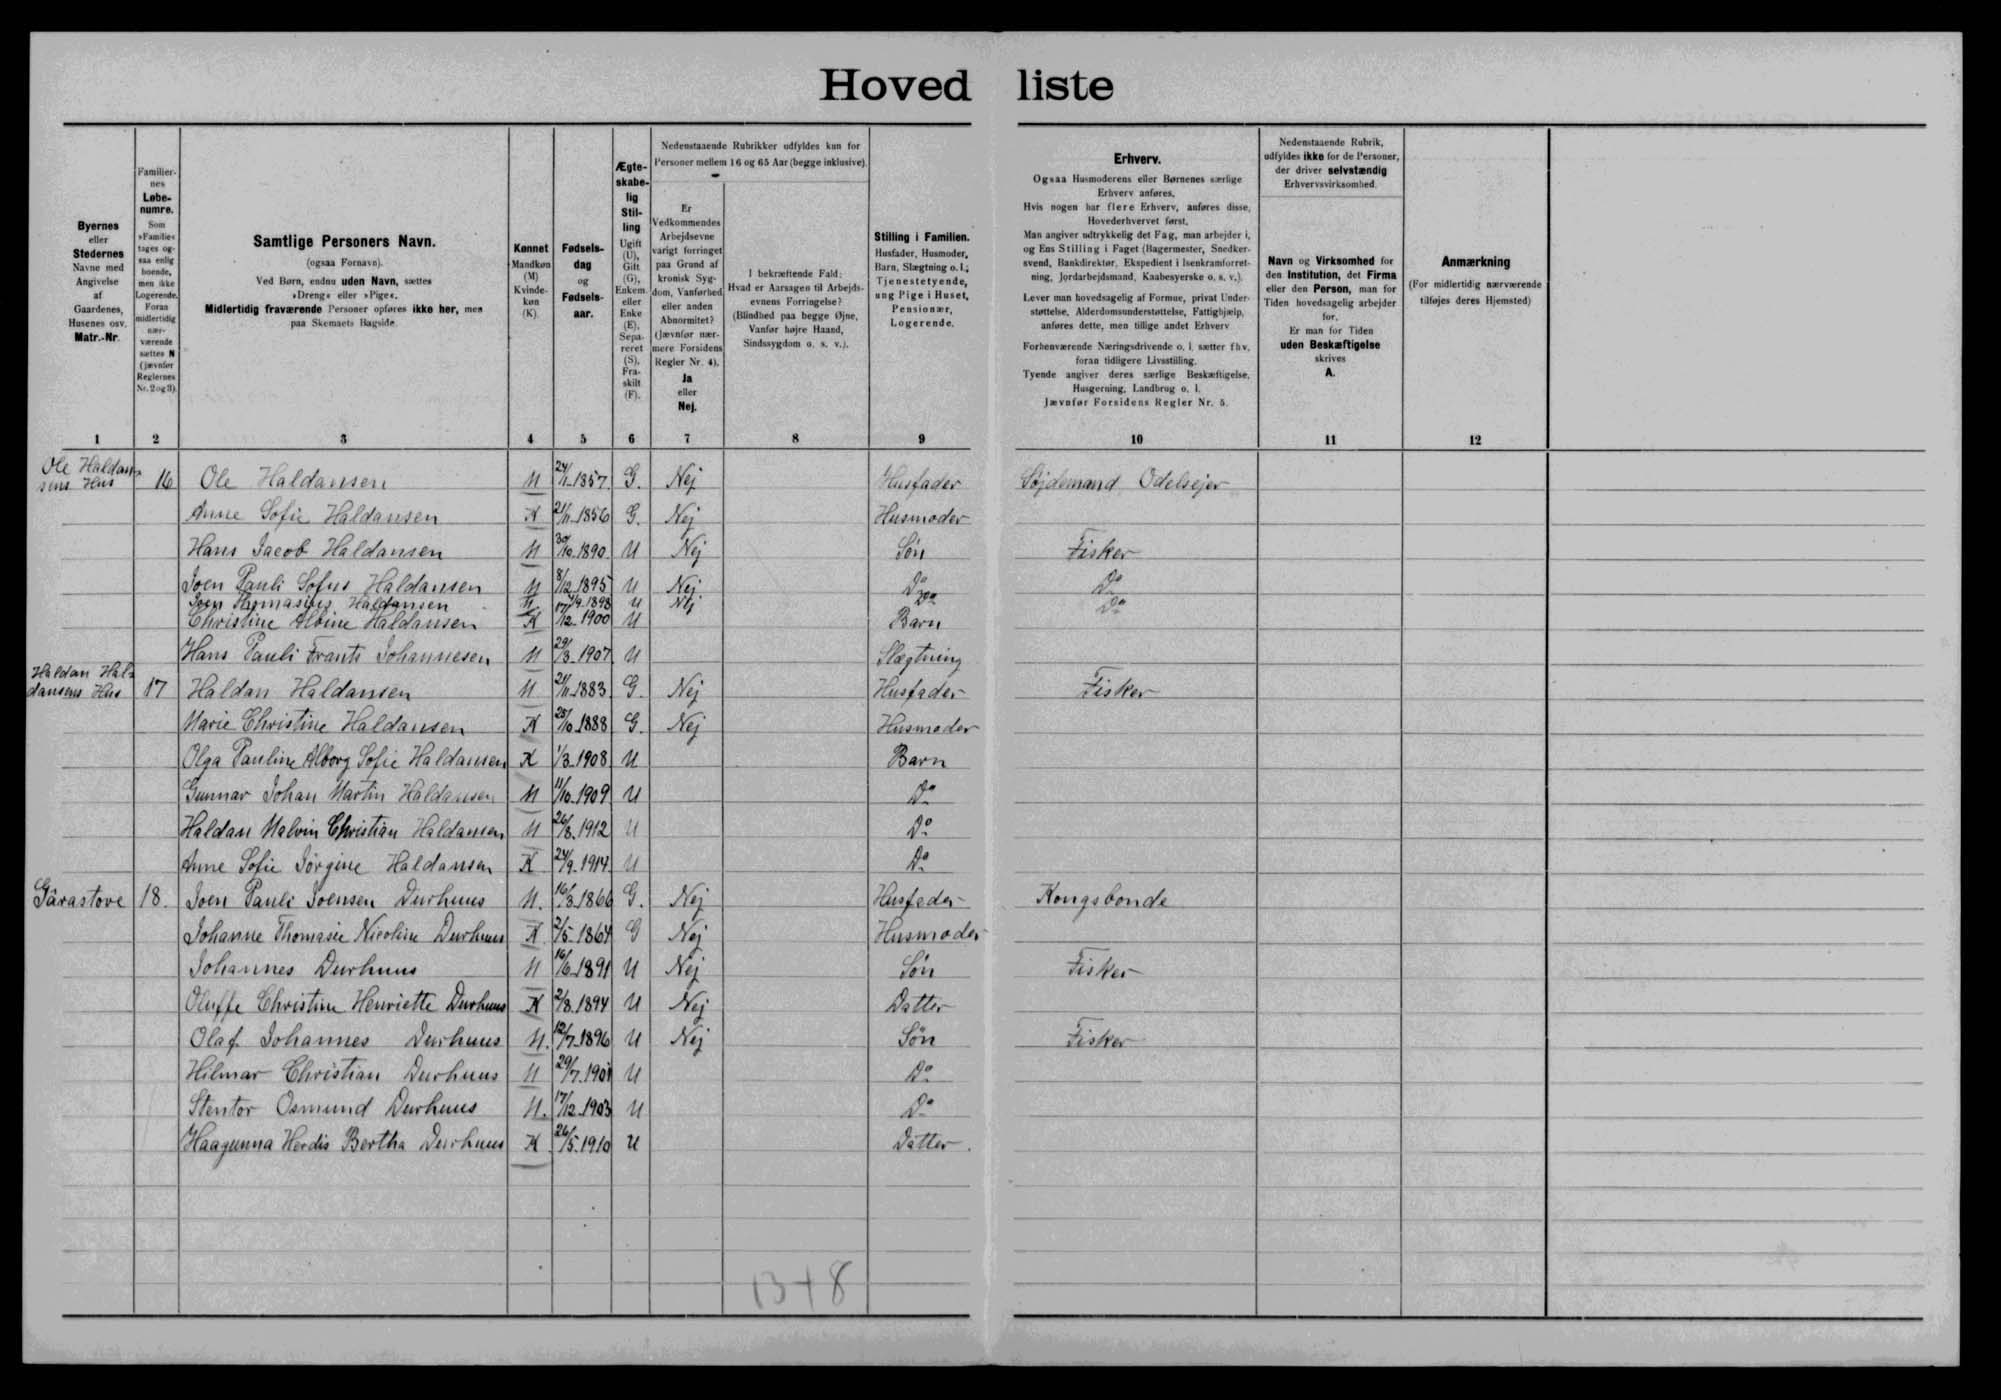 Hovedliste
Byernes eller Stedernes Navne med Angivelse af Gaardenes, Husenes osv. Matr.-Nr.
Familiernes Løbenumre. Som »Familie« tages ogsaa enlig boende, men ikke Logerende. Foran midlertidig nærværende sættes N (jævnfør Reglernes Nr. 2 og 3).
Samtlige Personers Navn. (ogsaa Fornavn). Ved Børn, endnu uden Navn, sættes »Dreng« eller »Pige«. Midlertidig fraværende Personer opføres ikke her, men paa Skemaets Bagside.
Kønnet Mandkøn (M) Kvindekøn (K).
Fødselsdag og Fødselsaar.
Ægteskabelig Stilling Ugift (U), Gift (G), Enkem. eller Enke (E), Separeret (S), Fraskilt (F).
Nedenstaaende Rubrikker udfyldes kun for Personer mellem 16 og 65 Aar (begge inklusive).
Er Vedkommendes Arbejdsevne varigt forringet paa Grund af kronisk Sygdom, Vanførhed eller anden Abnormitet? (Jævnfør nærmere Forsidens Regler Nr. 4). Ja eller Nej.
I bekræftende Fald: Hvad er Aarsagen til Arbejdsevnens Forringelse? (Blindhed paa begge Øjne, Vanfør højre Haand, Sindssygdom o. s. v.).
Stilling i Familien. Husfader, Husmoder, Barn, Slægtning o. l.; Tjenestetyende, ung Pige i Huset, Pensionær, Logerende.
Erhverv.
Ogsaa Husmoderens eller Børnenes særlige Erhverv anføres.
Hvis nogen har flere Erhverv, anføres disse, Hovederhvervet først.
Man angiver udtrykkelig det Fag, man arbejder i, og Ens Stilling i Faget (Bagermester, Snedkersvend, Bankdirektør, Ekspedient i Isenkramforretning, Jordarbejdsmand, Kaabesyerske o. s. v.).
Lever man hovedsagelig af Formue, privat Understøttelse, Alderdomsunderstøttelse, Fattighjælp, anføres dette, men tillige andet Erhverv
Forhenværende Næringsdrivende o. l. sætter fhv. foran tidligere Livsstilling.
Tyende angiver deres særlige Beskæftigelse, Husgerning, Landbrug o. l.
Jævnfør Forsidens Regler Nr. 5.
Nedenstaaende Rubrik, udfyldes ikke for de Personer, der driver selvstændig Erhvervsvirksomhed.
Navn og Virksomhed for den Institution, det Firma eller den Person, man for Tiden hovedsagelig arbejder for.
Er man for Tiden uden Beskæftigelse skrives A.
Anmærkning (For midlertidig nærværende tilføjes deres Hjemsted)
1 2 3 4 5 6 7 8 9 10 11 12
Ole Haldansens Hus 16 Ole Haldansen M 24/11 1857 G. Nej Husfader Odelsejer
Anne Sofie Haldansen K 21/11 1856 G. Nej Husmoder
Hans Jacob Haldansen M 30/10 1890 U Nej Søn Fisker
Joen Pauli Sofus Haldansen M 8/12 1895 U Nej Do Do
Joen Thomasius Haldansen M 1898 U Nej Do Do
Christine Albine Haldansen K 17/12 1900 U Barn
Hans Pauli Frants Johannesen M 29/3 1907 U Slægtning
Haldan Haldansens Hus 17 Haldan Haldansen M 21/11 1883 G. Nej Husfader Fisker
Marie Christine Haldansen K 28/10 1888 G. Nej Husmoder
Olga Pauline Alborg Sofie Haldansen K 1/3 1908 U Barn
Gunnar Johan Martin Haldansen M 11/10 1909 U Do
Haldan Malvin Christian Haldansen M 26/8 1912 U Do
Anne Sofie Jørgine Haldansen K 24/9 1914 U Do
Gârastove 18. Joen Pauli Joensen Durhuus M. 16/3 1866 G. Nej Husfader Kongsbonde
Johanne Thomasie Nicoline Durhuus K 2/5 1864 G Nej Husmoder
Johannes Durhuus M 16/6 1891 U Nej Søn Fisker
Oluffe Christine Henriette Durhuus K 2/8 1894 U Nej Datter
Olaf Johannes Durhuus M. 12/7 1896 U Nej Søn Fisker
Hilmar Christian Durhuus M 29/7 1901 U Do
Stentor Osmund Durhuus M. 17/12 1903 U Do
Haagunna Herdis Bertha Durhuus K 26/5 1910 U Datter.
13+8